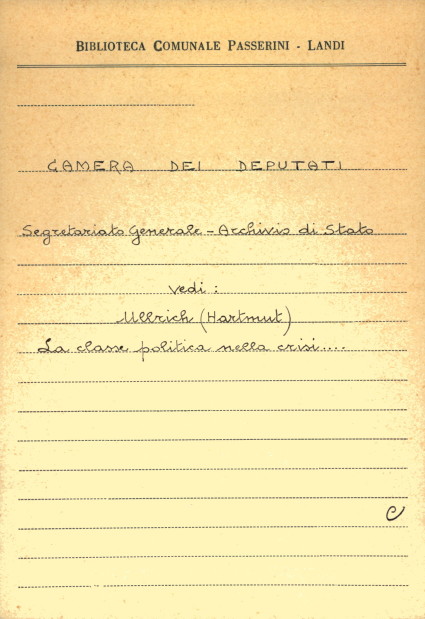 BIBLIOTECA COMUNALE PASSERINI - LANDI
CAMERA DEI DEPUTATI
Segretariato Generale - Archivio di Stato
Vedi :
Ullrich (Hartmut)
La classe politica nella crisi....
C